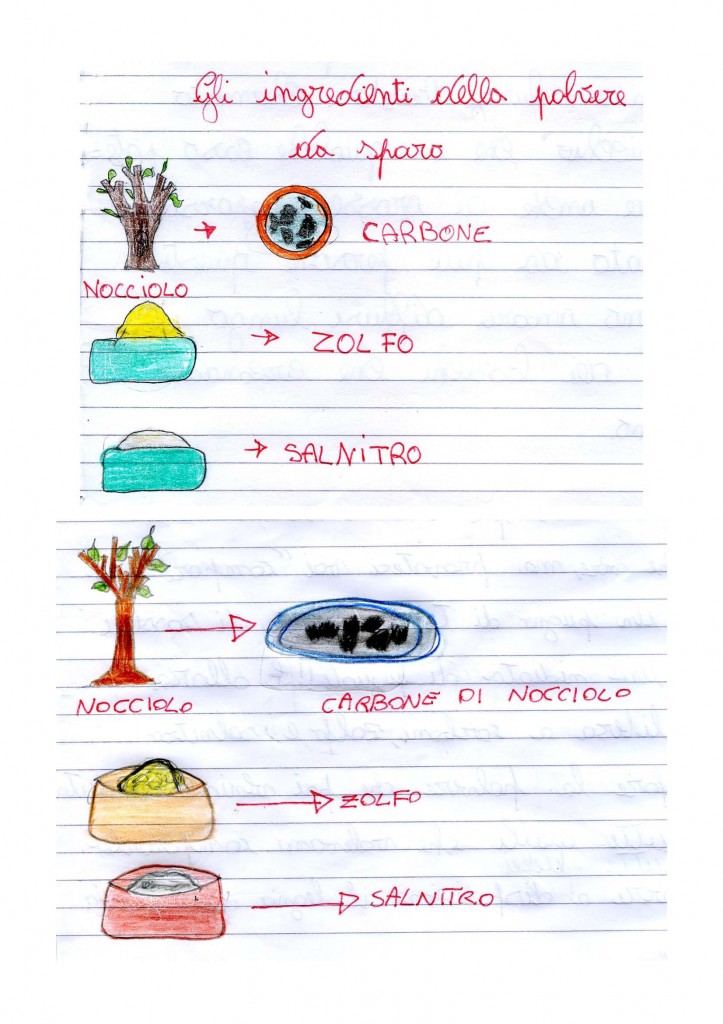 Gli ingredienti della polvere
da sparo
CARBONE
NOCCIOLO
ZOLFO
SALNITRO
NOCCIOLO
CARBONE DI NOCCIOLO
ZOLFO
SALNITRO